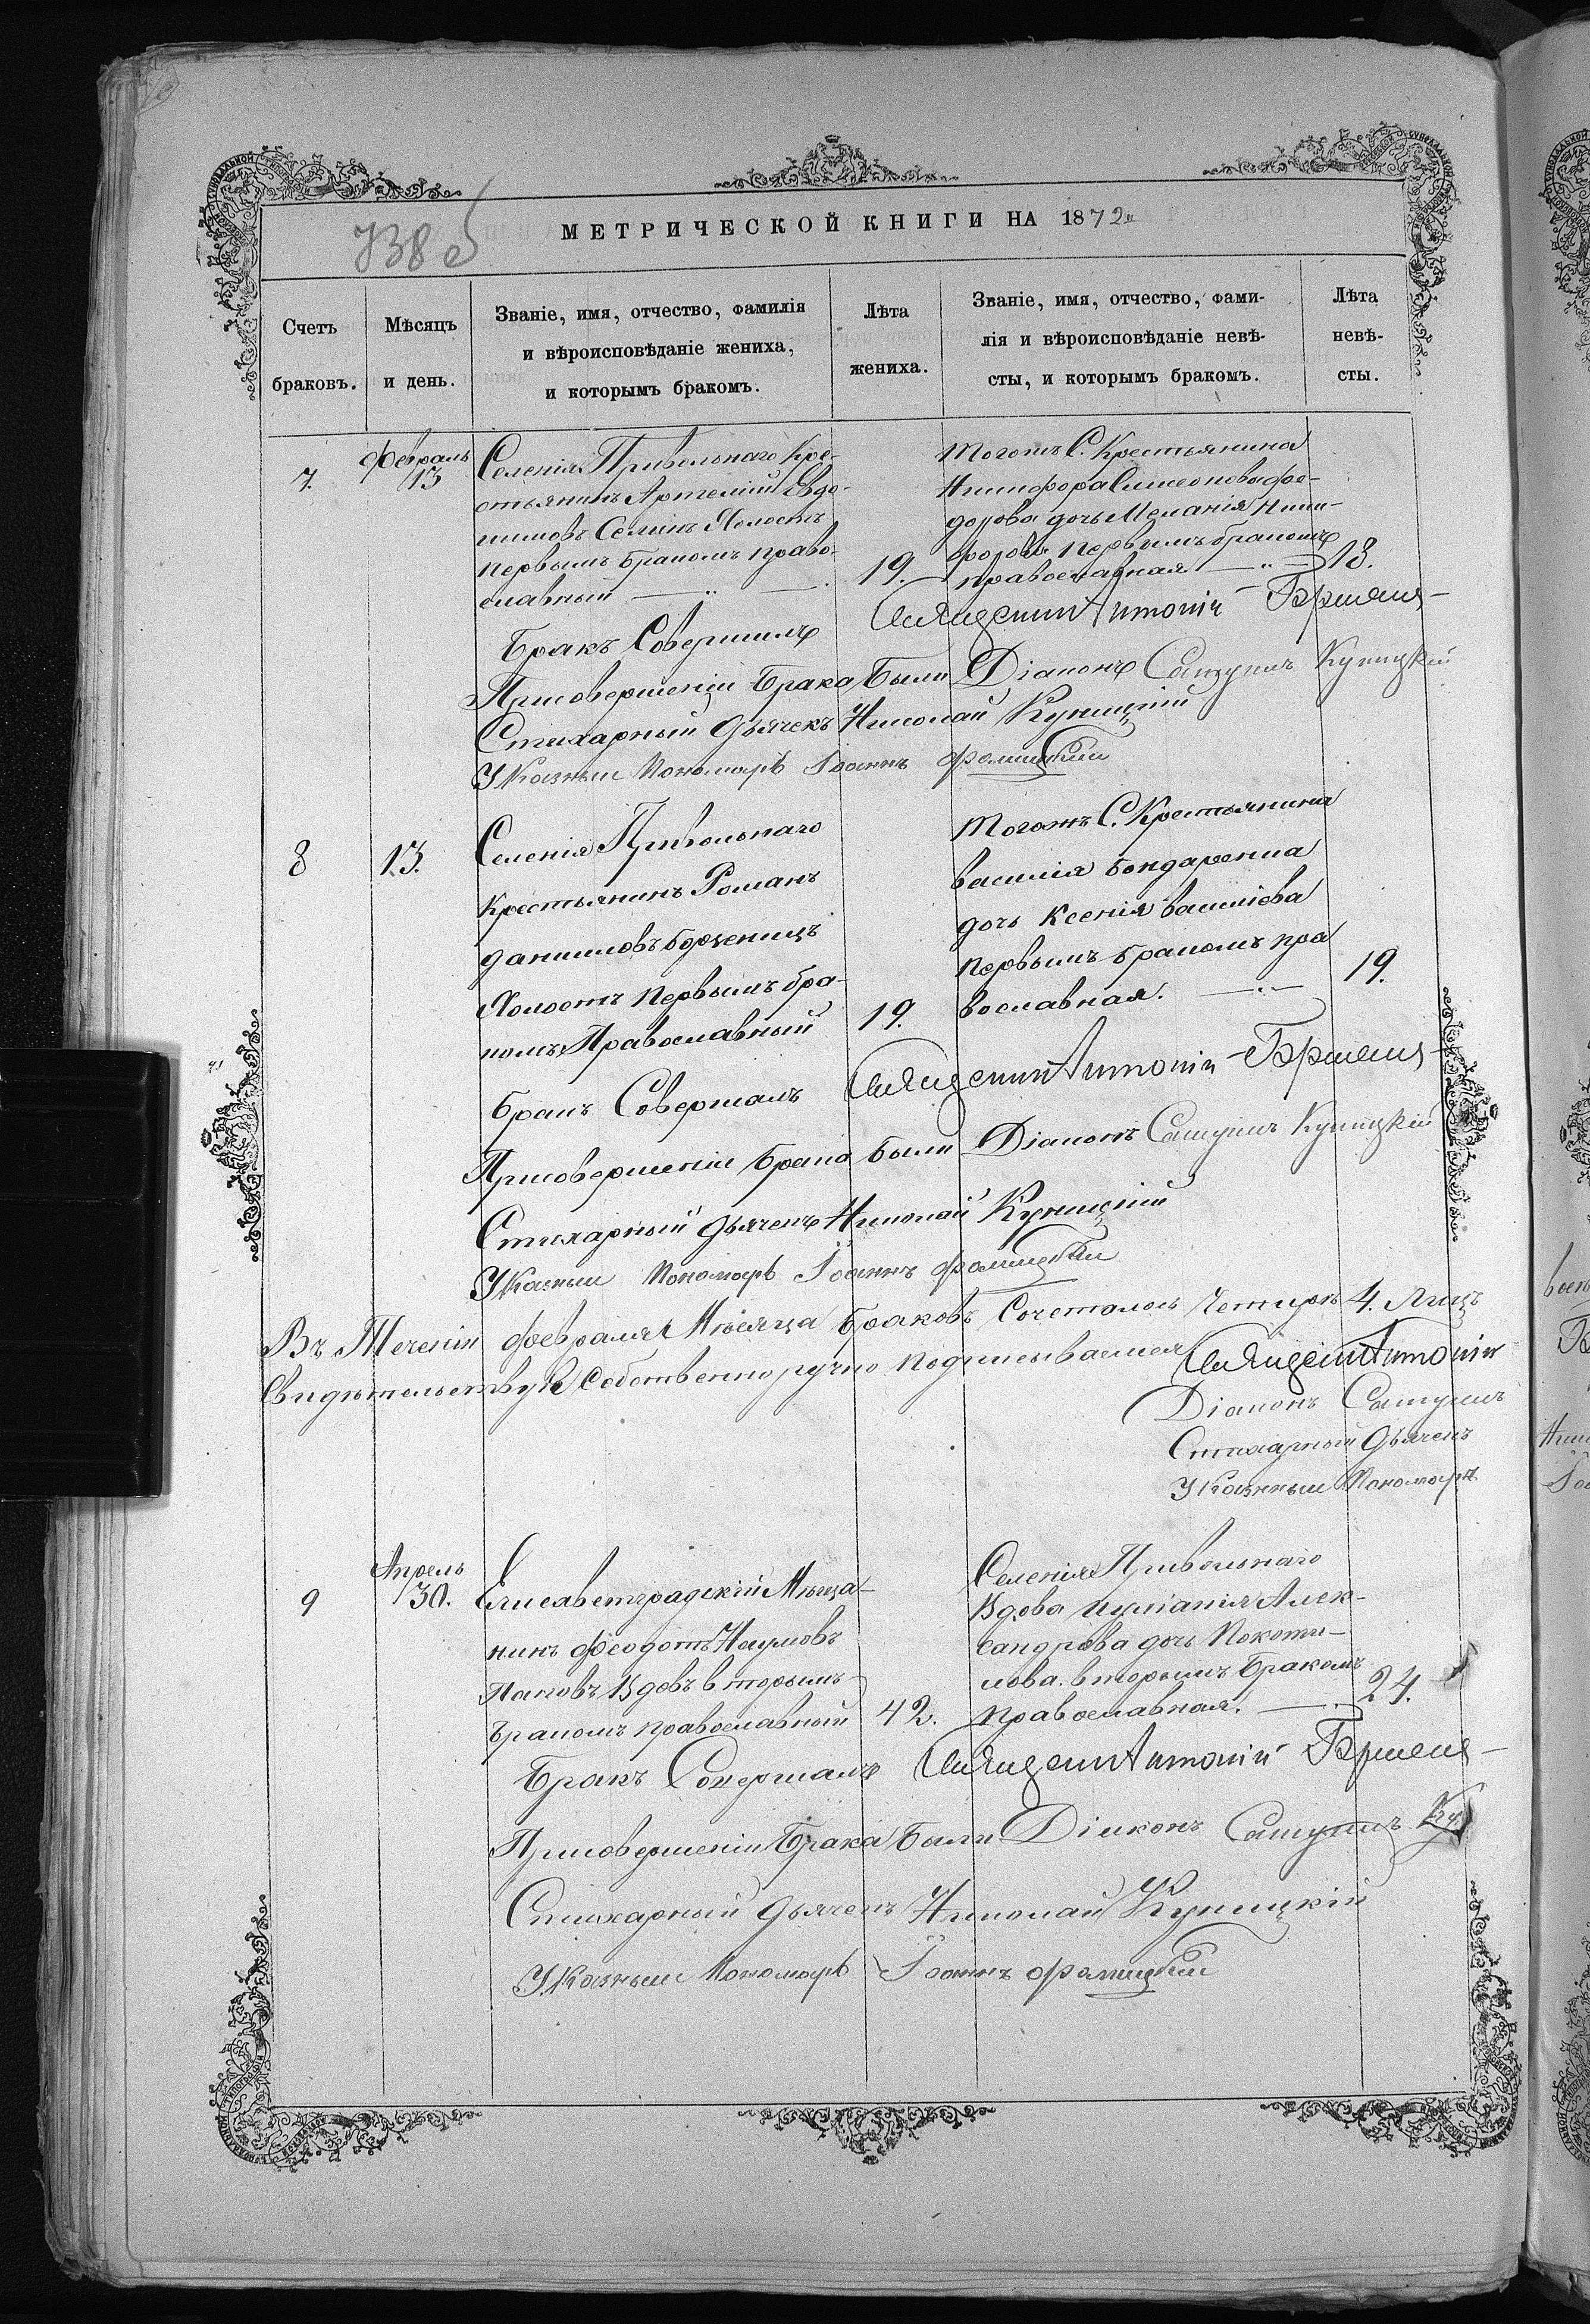 738 об
МЕТРИЧЕСКОЙ КНИГИ НА 1872
Счетъ браковъ.
Мѣсяцъ и день.
Званіе, имя, отчество, фамилія
и вѣроисповѣданіе жениха,
и которымъ бракомъ.
Лѣта
жениха.
Званіе, имя, отчество, фами-
лія и вѣроисповѣданіе невѣ-
сты, и которымъ бракомъ.
Лѣта
невѣ-
сты.
7.
Февраль
13
Селенія Привольнаго Кре-
стьянинъ Артемій Евдо-
кимовъ Семинъ Холостъ
первымъ бракомъ право-
славный
19.
Тогожъ С. Крестьянина
Никифора Симеонова Фео-
дорова дочь Меланія Ники-
форова первымъ бракомъ
православная
18.
Бракъ Совершилъ Священникъ Антоній
При совершеніи Брака Были Діаконъ Куницкій
Стихарный дьячекъ Николай Куницкій
Указный Пономарь Іоаннъ
8
13.
Селенія Привольнаго
Крестьянинъ Романъ
Даниловъ
Холостъ первымъ бра-
комъ Православный
19.
Тогожъ С. Крестьянина
Василія Бондаренка
дочь Ксенія Василіева
первымъ бракомъ пра
вославная.
19.
Бракъ Совершалъ Священникъ Антоній
При совершеніи Брака были Діаконъ Куницкій
Стихарный дьячекъ Николай Куницкій
Указный Пономарь Іоаннъ
Въ Теченіи Февраля Мѣсяца браковъ Сочеталось Четыре 4.
Свидѣтельствуя Собственноручно подписываемся Священникъ Антоній
Діаконъ
Стихарный Дьячекъ
Указный Пономарь
9
Апрель
30.
Елисаветградскій Мѣща-
нинъ Феодотъ Наумовъ
Поповъ Вдовъ вторымъ
бракомъ православный
42.
Селенія Привольнаго
Вдова Иуліанія Алек-
сандрова дочь Покоти-
лова. вторымъ Бракомъ
православная.
24.
Бракъ Совершалъ Священникъ Антоній
При совершеніи Брака Были Діаконъ
Стихарный дьячекъ Николай Куницкій
Указный Пономарь Іоаннъ